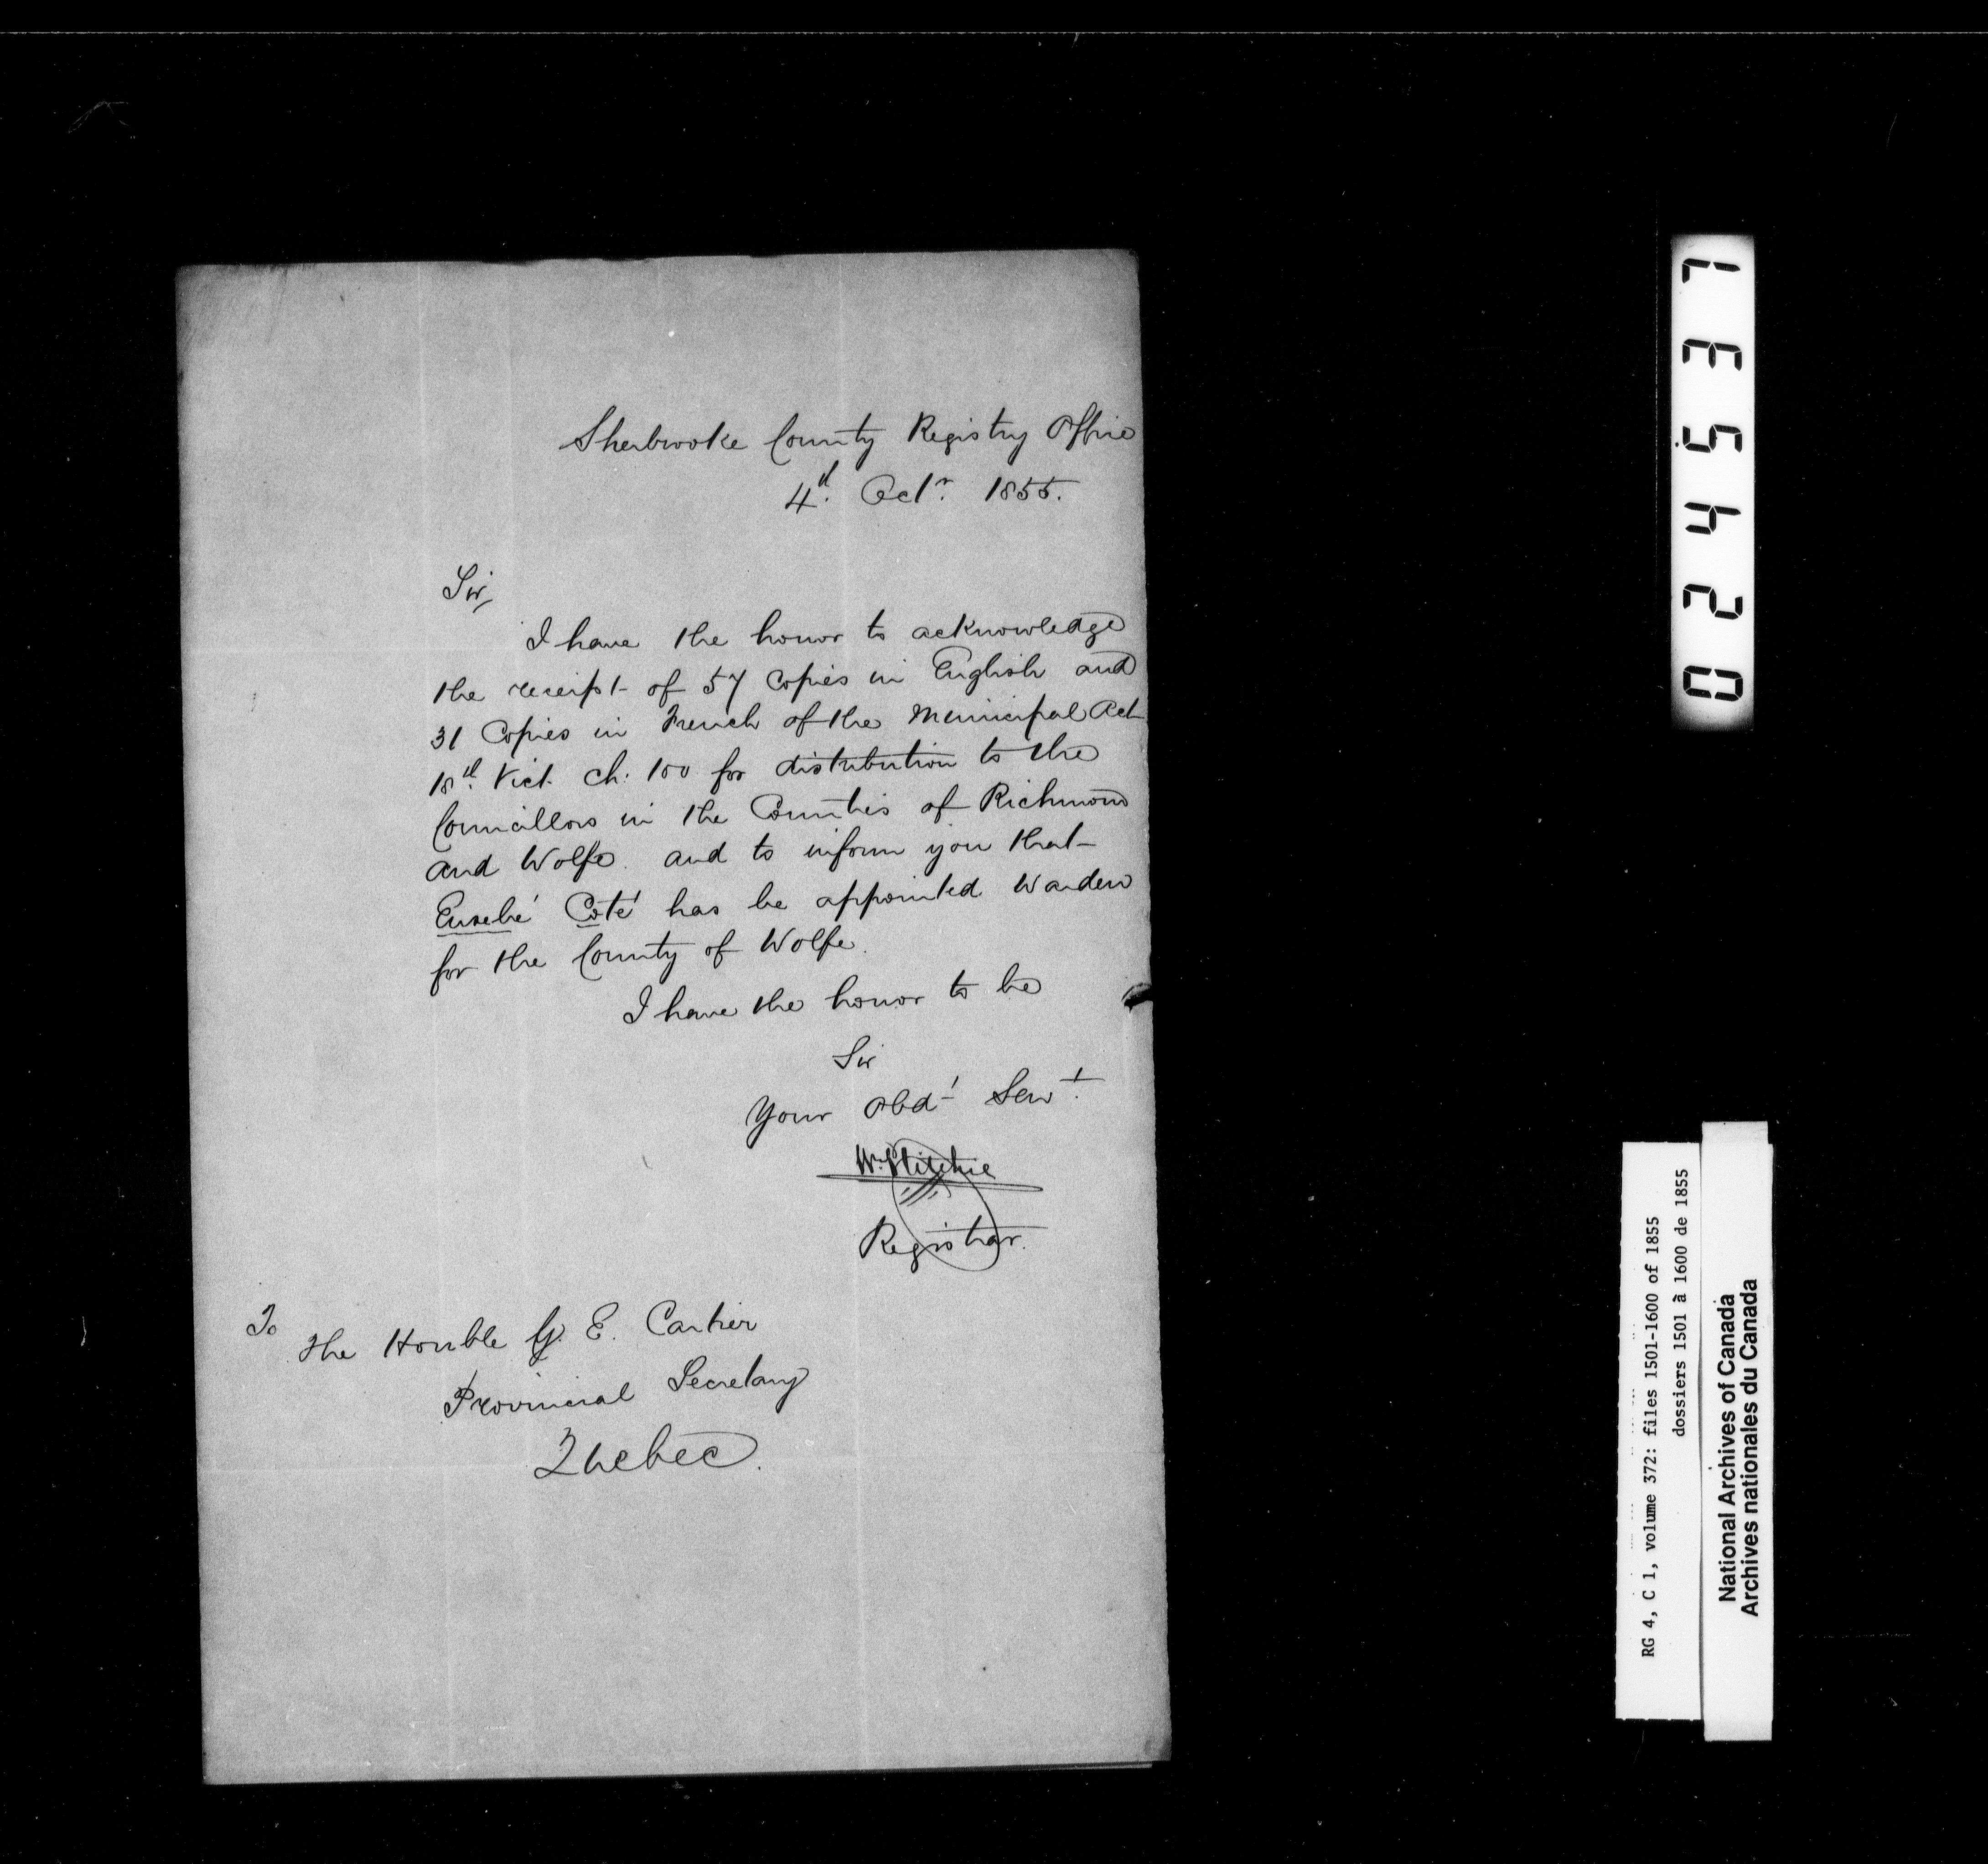 Sherbrooke County Registry Office
4d. Octr. 1855.
Sir,
I have the honor to acknowledge
the receipt of 57 Copies in English and
31 Copies in French of the Municipal Act
18d. Vict. Ch: 100 for distribution to the
Councillors in the Counties of Richmond
and Wolfe. and to inform you that
Eusebé Coté has be appointed Warden
for the County of Wolfe.
I have the honor to be
Sir
Your Obdt Servt.
Wm Ritchie
Registrar.
To
The Honble G. E. Cartier
Provincial Secretary
Quebec.
024531
RG 4, C 1, volume 372: files 1501-1600 of 1855
dossiers 1501 à 1600 de 1855
National Archives of Canada
Archives nationales du Canada